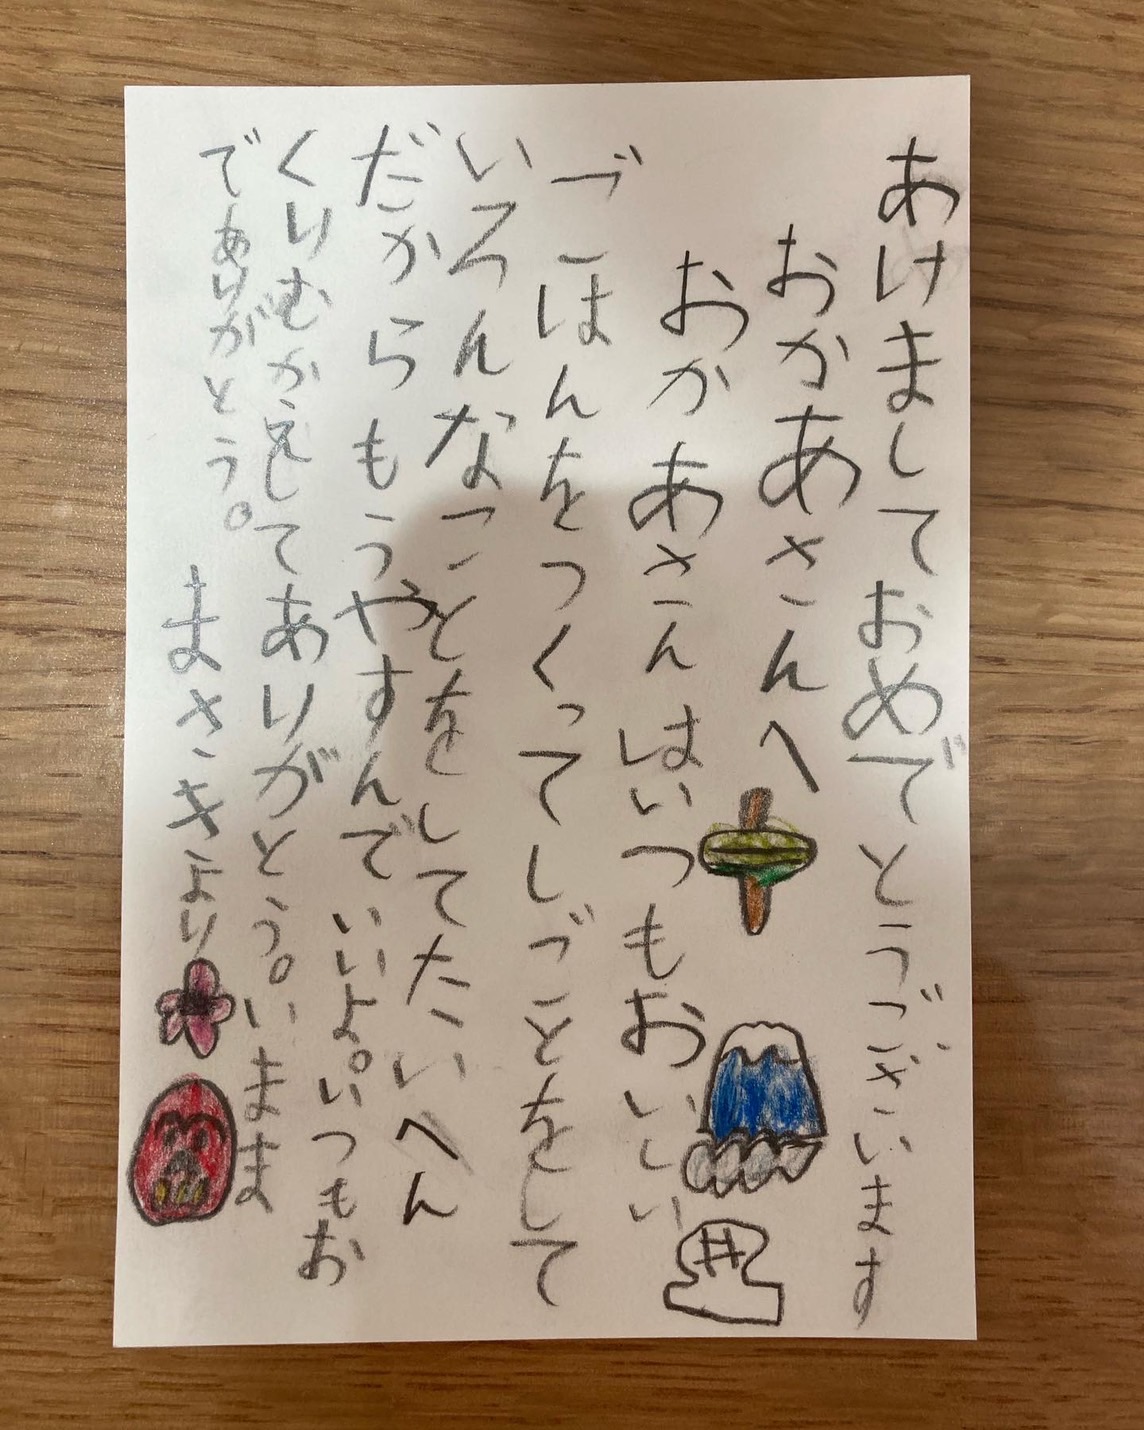 あけましておめでとうございます
おかあさんへ
おかあさんはいつもおいしい
ごはんをつくってしごとをして
いろんなことをしてたいへん
だからもうやすんでいいよ。いつもお
くりむかえしてありがとう。いまま
でありがとう。
まさきより